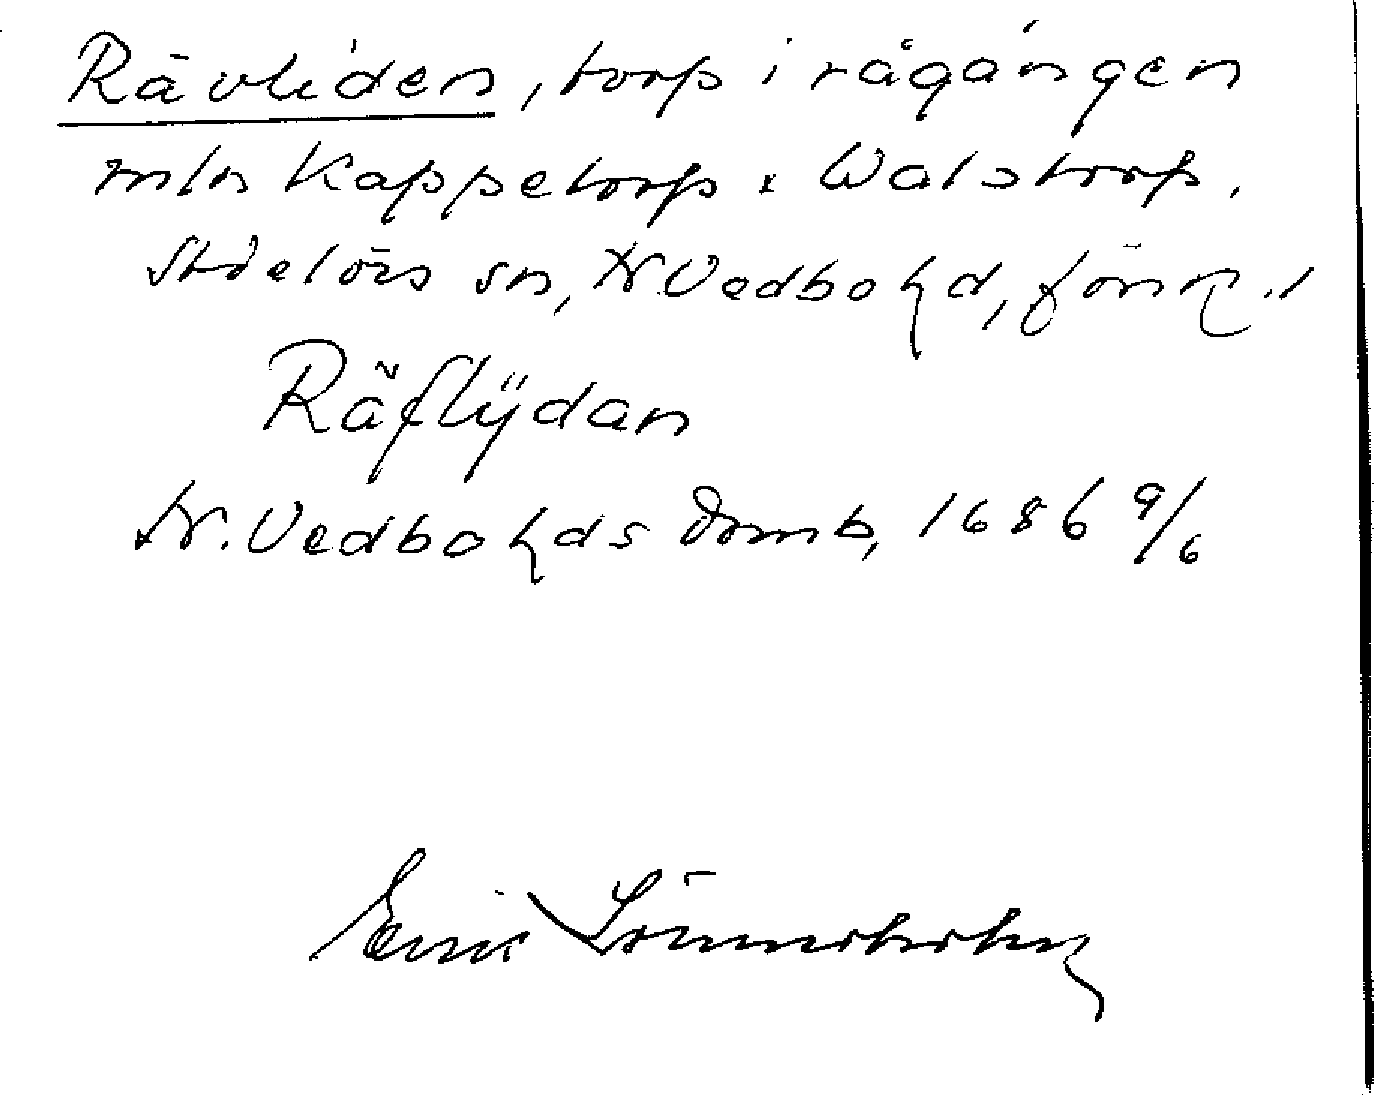 Rävliden, torp i rågången
mln Kappetorp x Walstorp.
Stöelörs sn, N. Vedbo hd,
Räflÿdan
N. Vedbo hds Domb, 1686 9/6